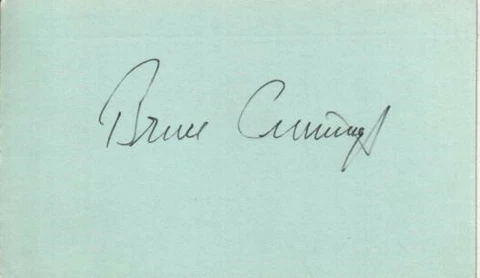 Bruce Cumings